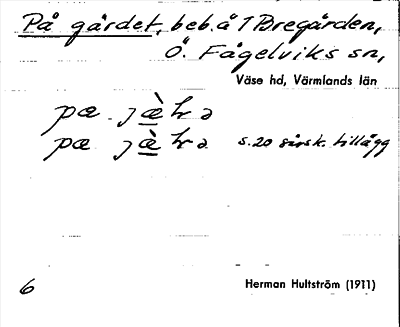 På gärdet, beb. å 1 Bregården,
Ö. Fågelviks sn,
Väse hd, Värmlands län
pæ
pæ s. 20 särsk. tillägg
6 Herman Hultström (1911)